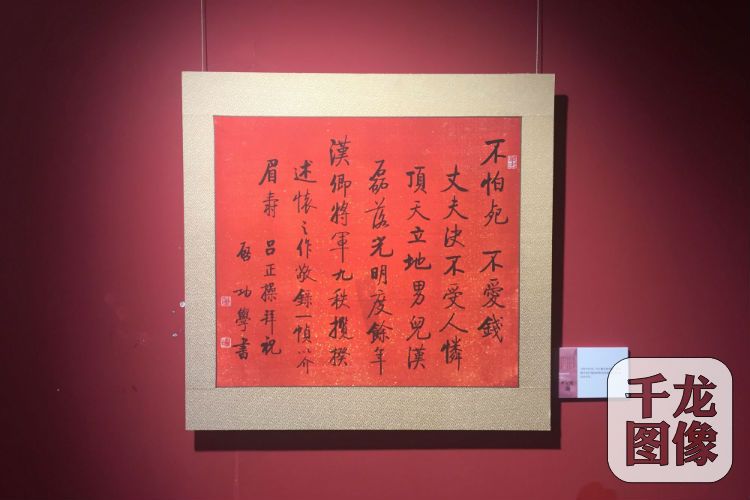 不怕死 不愛錢
丈夫決不受人憐
頂天立地男兒漢
磊落光明度餘年
漢卿將軍九秩攬揆
述懷之作敬錄一幀以介
眉壽 呂正操拜祝
啟功學書
千龙
图像